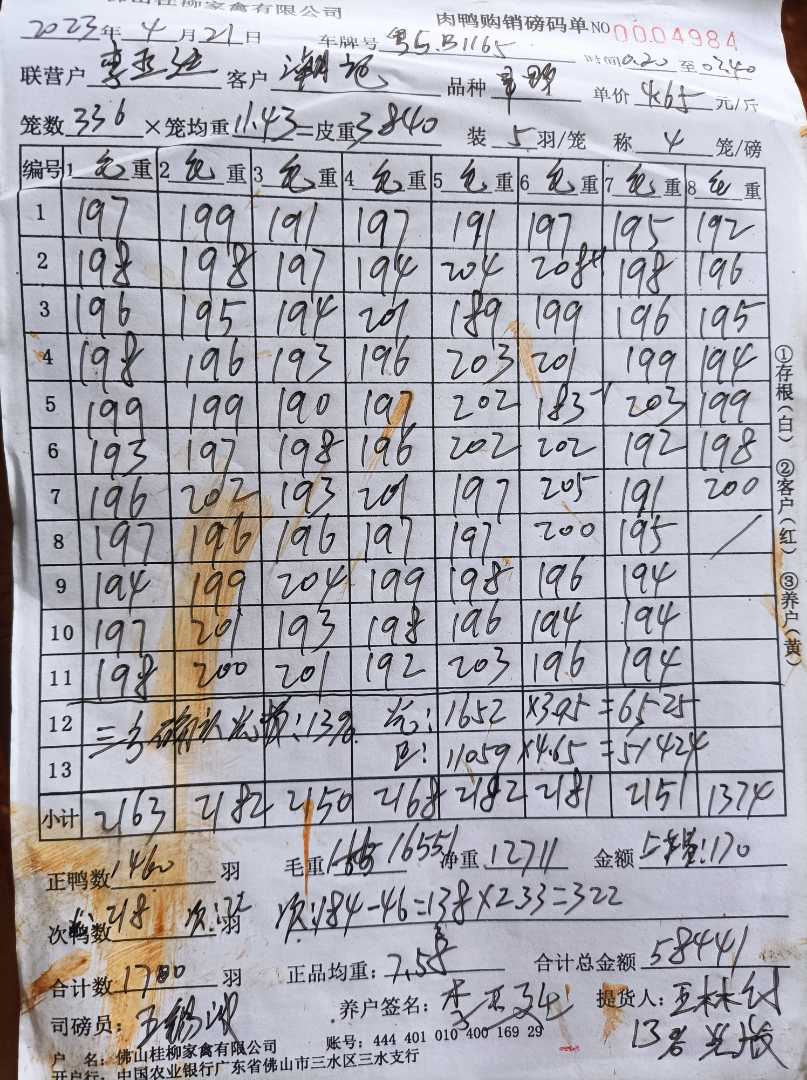 佛山桂柳家禽有限公司 肉鸭购销磅码单 NO 0004984
2023年4月21日 车牌号 粤S.B1165 时间 0.20 至 02.40
联营户 客户 品种 单价 4.65 元/斤
笼数 336 ×笼均重 11.43 =皮重 3840 装 5 羽/笼 称 4 笼/磅
编号 1 毛 重 2 毛 重 3 毛 重 4 毛 重 5 毛 重 6 毛 重 7 毛 重 8 毛 重
1 197 199 191 197 191 197 195 192
2 198 198 197 194 204 208 198 196
3 196 195 194 201 189 199 196 195
4 198 196 193 196 203 201 199 194
5 199 199 190 197 202 183 203 199
6 193 197 198 196 202 202 192 198
7 196 202 193 201 197 205 191 200
8 197 196 196 197 197 200 195 /
9 194 199 204 199 198 196 194
10 197 201 193 198 196 194 194
11 198 200 201 192 203 196 194
12 1652 ×3.95 =6525
13 11059 ×4.65 =51424
小计 2163 2182 2150 2168 2182 2181 2151 1374
正鸭数 1460 羽 毛重 16551 净重 12711 金额 170
次鸭数 218 羽 次:184-46=138×2.33=322
合计数 1700 羽 正品均重: 7.58 合计总金额 58441
司磅员: 养户签名: 提货人:
13%
户 名: 佛山桂柳家禽有限公司 账号: 444 401 010 400 169 29
开户行: 中国农业银行广东省佛山市三水区三水支行
①存根(白) ②客户(红) ③养户(黄)